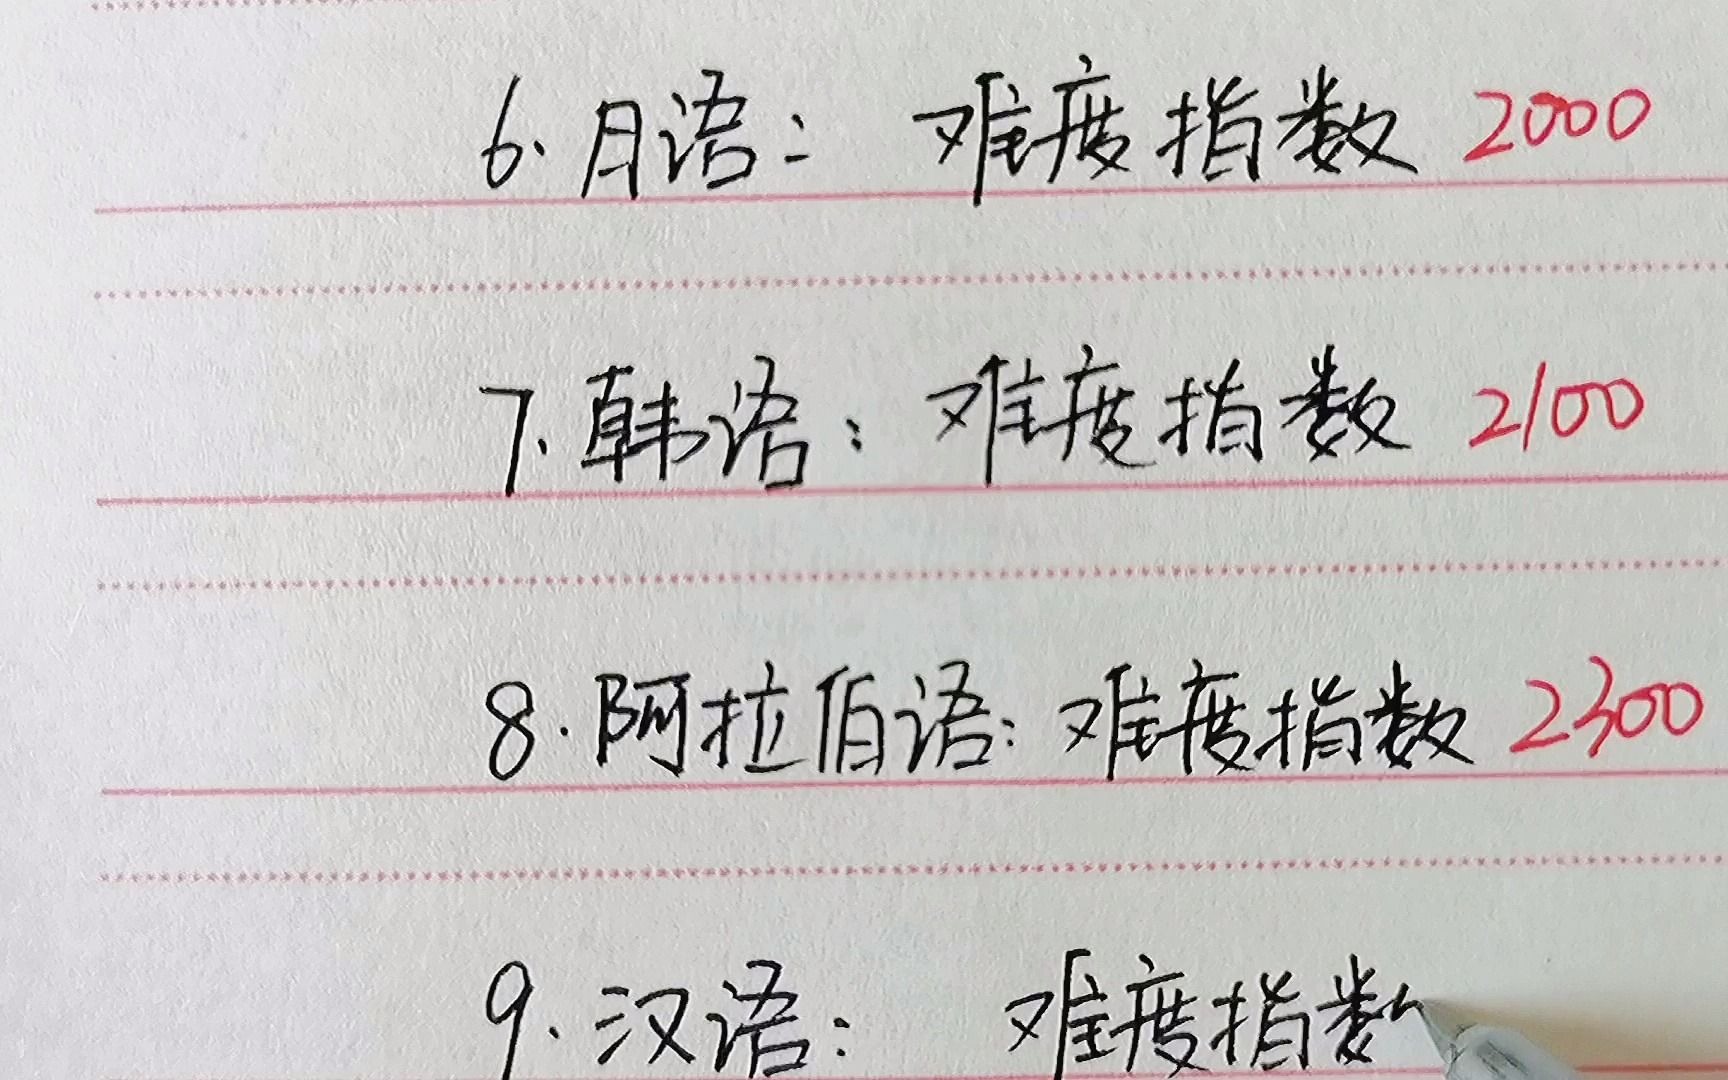 6. 日语: 难度指数 2000
7. 韩语: 难度指数 2100
8. 阿拉伯语: 难度指数 2300
9. 汉语: 难度指数